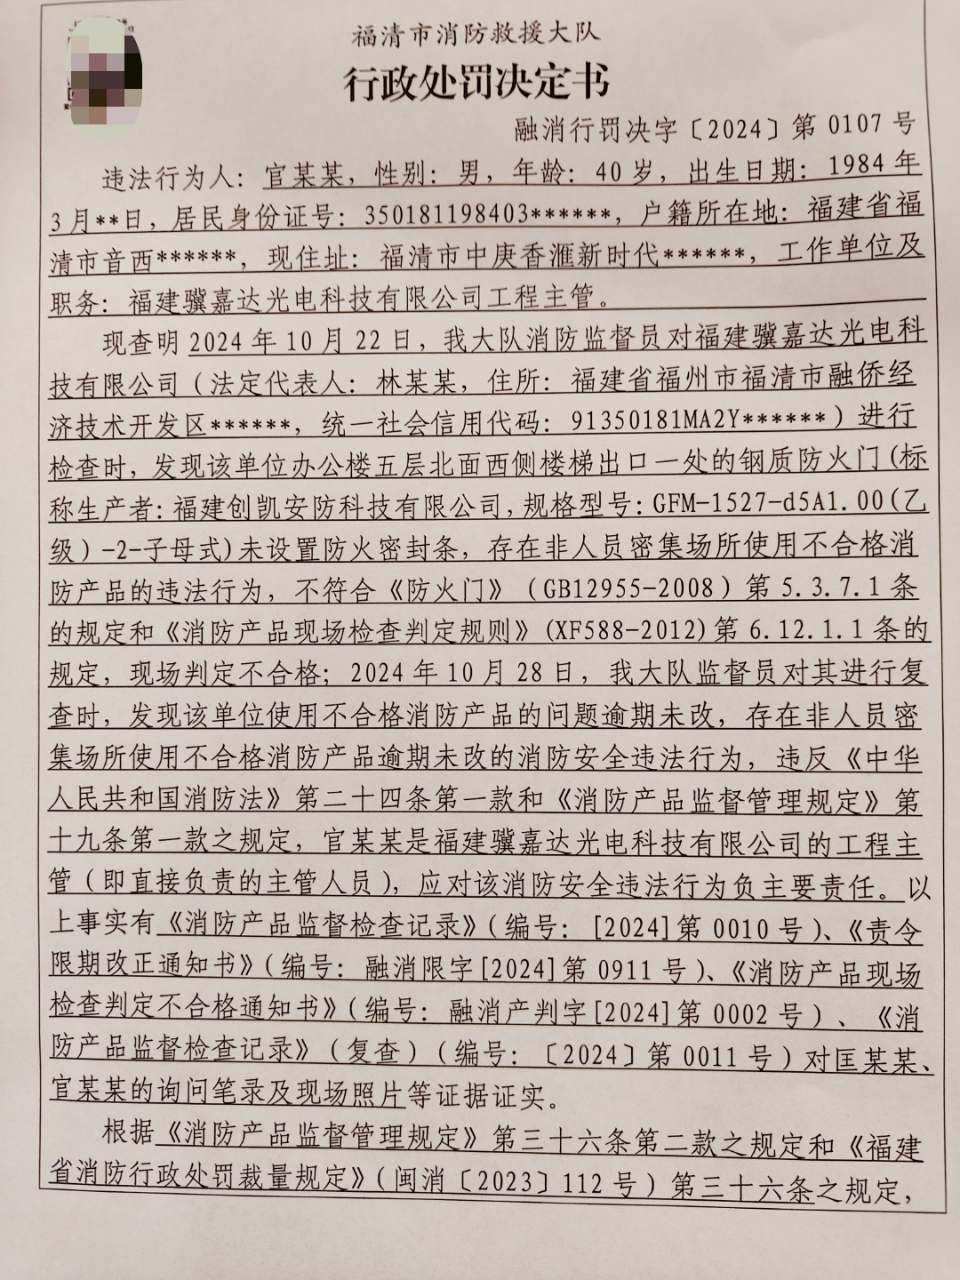 福清市消防救援大队
行政处罚决定书
融消行罚决字〔2024〕第 0107 号
违法行为人：官某某，性别：男，年龄：40 岁，出生日期：1984 年
3 月**日，居民身份证号：350181198403******，户籍所在地：福建省福
清市音西******，现住址：福清市中庚香滙新时代******，工作单位及
职务：福建骥嘉达光电科技有限公司工程主管。
现查明 2024 年 10 月 22 日，我大队消防监督员对福建骥嘉达光电科
技有限公司（法定代表人：林某某，住所：福建省福州市福清市融侨经
济技术开发区******，统一社会信用代码：91350181MA2Y******）进行
检查时，发现该单位办公楼五层北面西侧楼梯出口一处的钢质防火门(标
称生产者:福建创凯安防科技有限公司,规格型号:GFM-1527-d5A1.00(乙
级）-2-子母式)未设置防火密封条，存在非人员密集场所使用不合格消
防产品的违法行为，不符合《防火门》（GB12955-2008）第 5.3.7.1 条
的规定和《消防产品现场检查判定规则》(XF588-2012)第 6.12.1.1 条的
规定，现场判定不合格；2024 年 10 月 28 日，我大队监督员对其进行复
查时，发现该单位使用不合格消防产品的问题逾期未改，存在非人员密
集场所使用不合格消防产品逾期未改的消防安全违法行为，违反《中华
人民共和国消防法》第二十四条第一款和《消防产品监督管理规定》第
十九条第一款之规定，官某某是福建骥嘉达光电科技有限公司的工程主
管（即直接负责的主管人员），应对该消防安全违法行为负主要责任。以
上事实有《消防产品监督检查记录》（编号：[2024]第 0010 号）、《责令
限期改正通知书》（编号：融消限字[2024]第 0911 号）、《消防产品现场
检查判定不合格通知书》（编号：融消产判字[2024]第 0002 号）、《消
防产品监督检查记录》（复查）（编号：〔2024〕第 0011 号）对匡某某、
官某某的询问笔录及现场照片等证据证实。
根据《消防产品监督管理规定》第三十六条第二款之规定和《福建
省消防行政处罚裁量规定》（闽消〔2023〕112 号）第三十六条之规定，